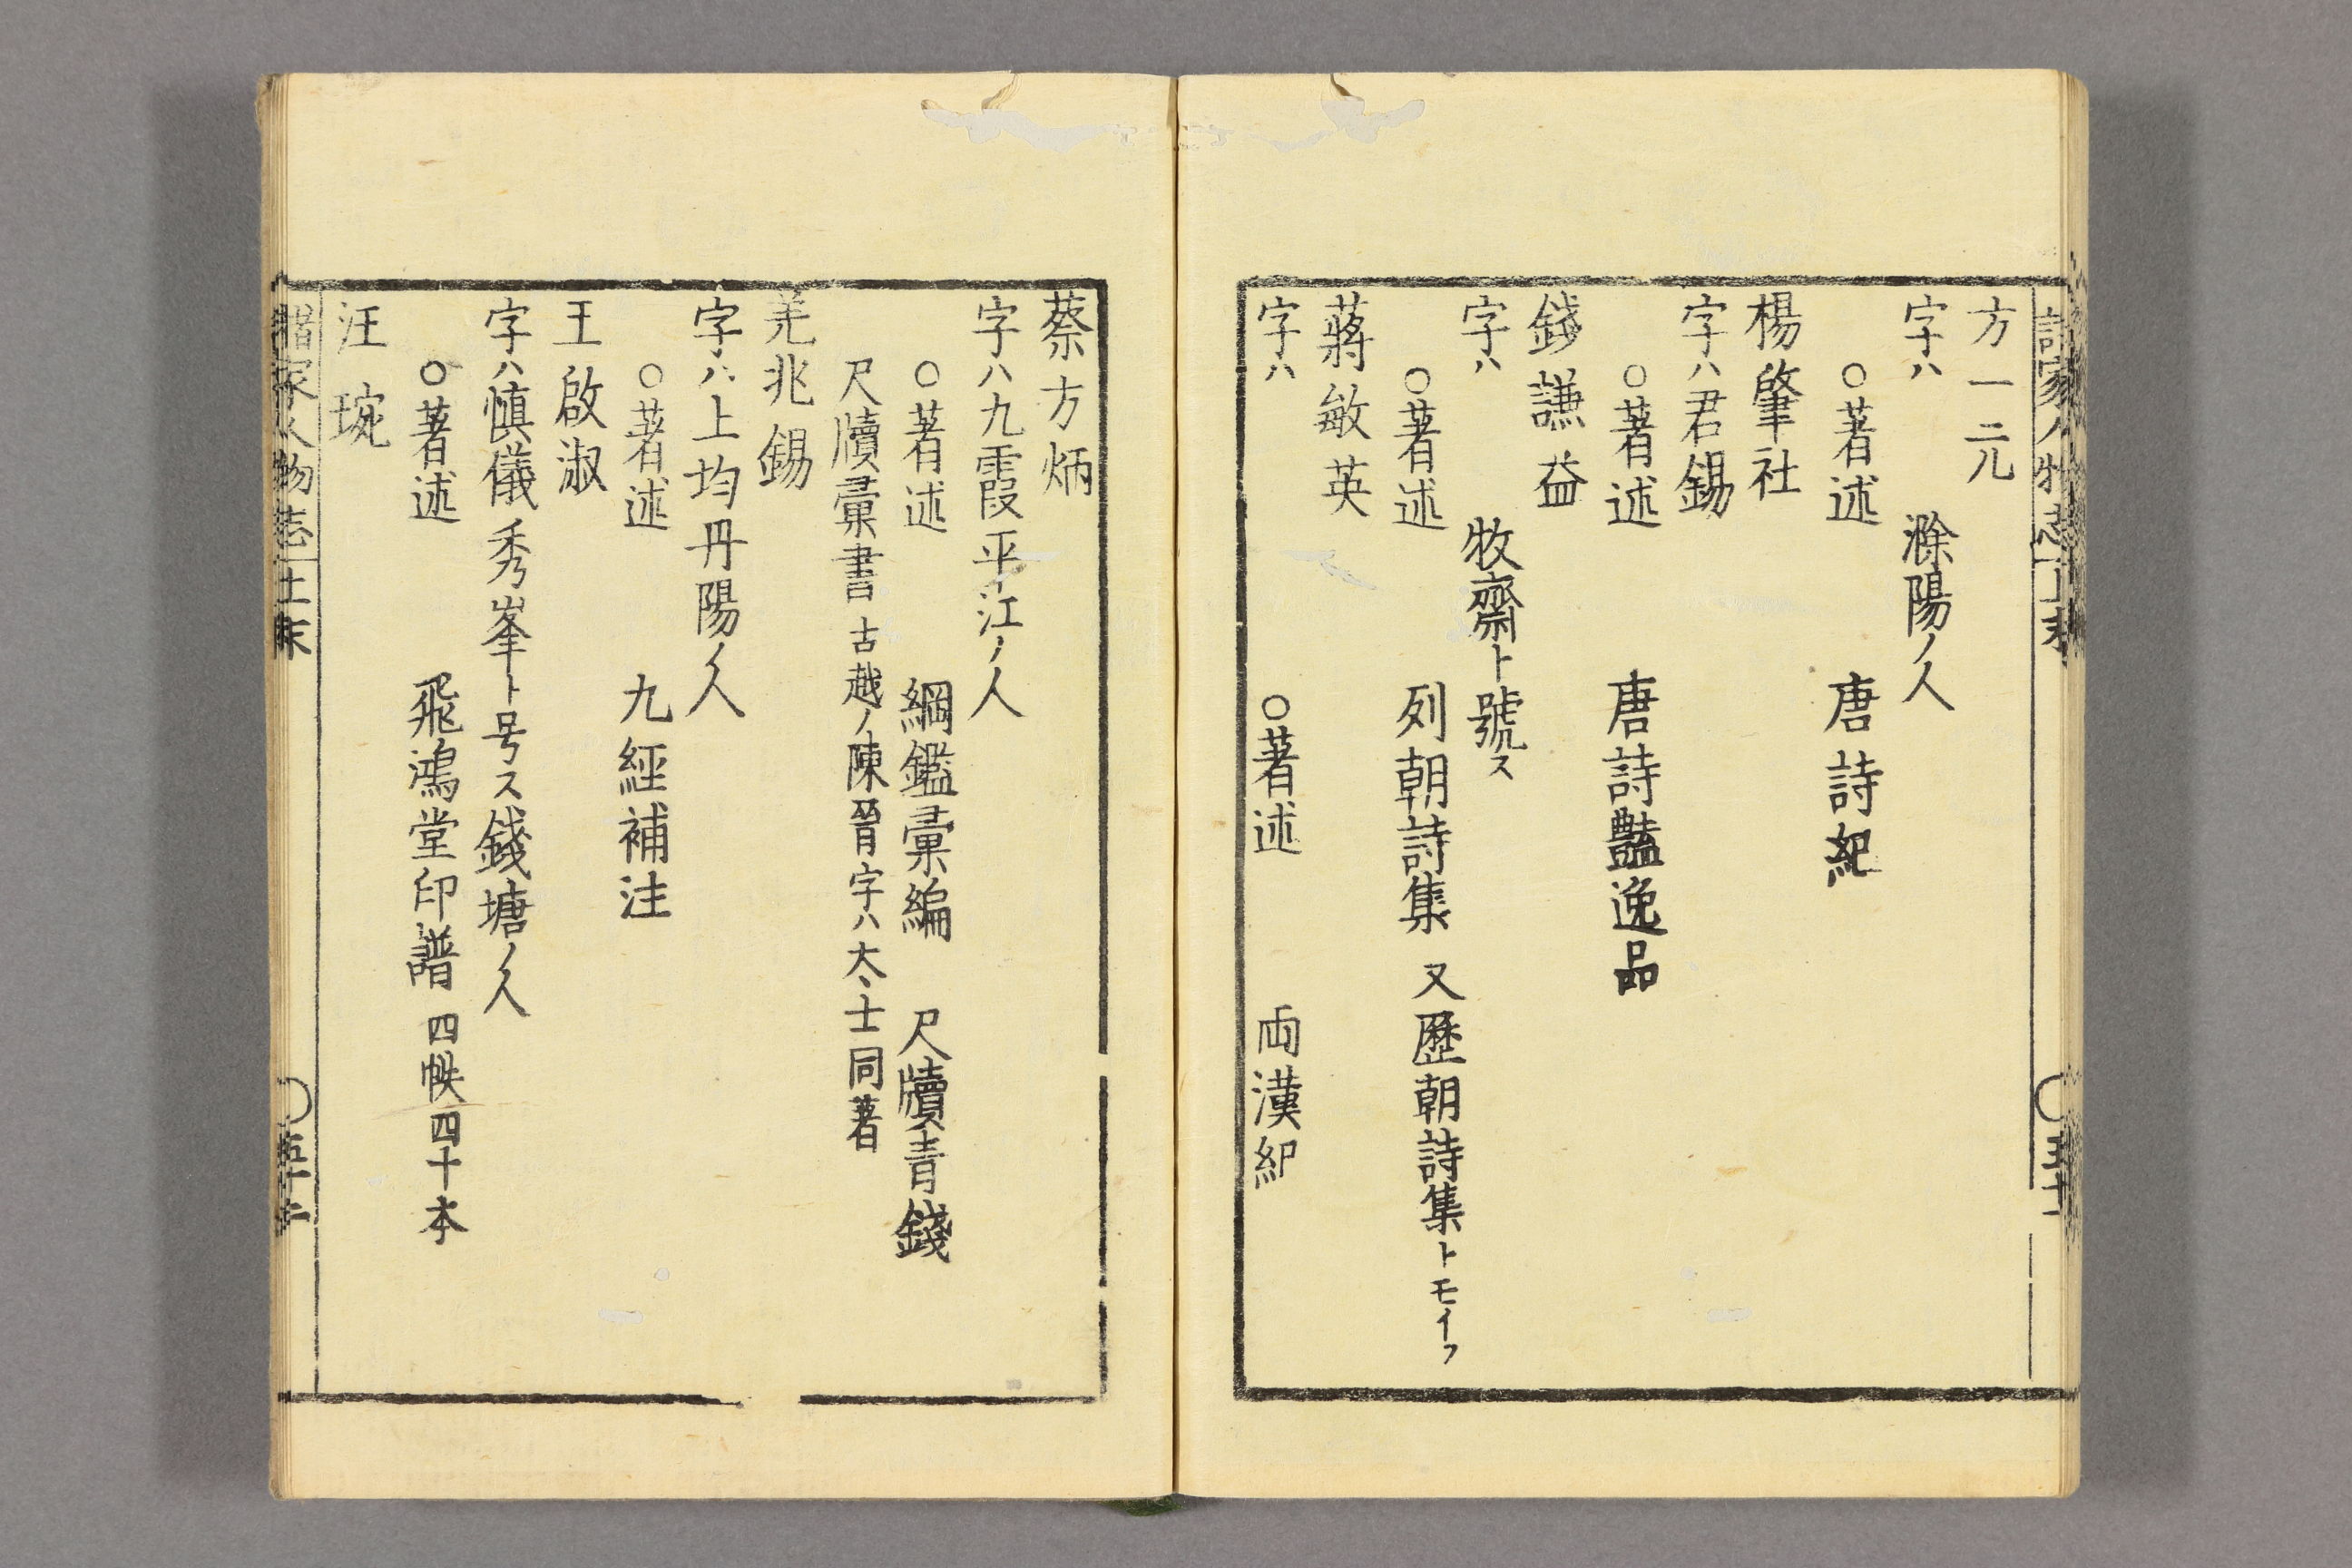 方一元
字ハ　　滁陽ノ人
○著述　　唐詩紀
楊肇社
字ハ君錫
○著述　　唐詩豔逸品
錢謙益
字ハ　　牧齋ト號ス
○著述　　列朝詩集　又歷朝詩集トモイフ
蔣敏英
字ハ　　○著述　　両漢紀
蔡方炳
字ハ九霞平江ノ人
○著述　　綱鑑彙編　尺牘青錢
尺牘彙書　古越ノ陳晉字ハ太士同著
羌兆錫
字ハ上均丹陽ノ人
○著述　　九經補注
王啟淑
字ハ慎儀秀峯ト号ス錢塘ノ人
○著述　　飛鴻堂印譜　四帙四十本
汪琬